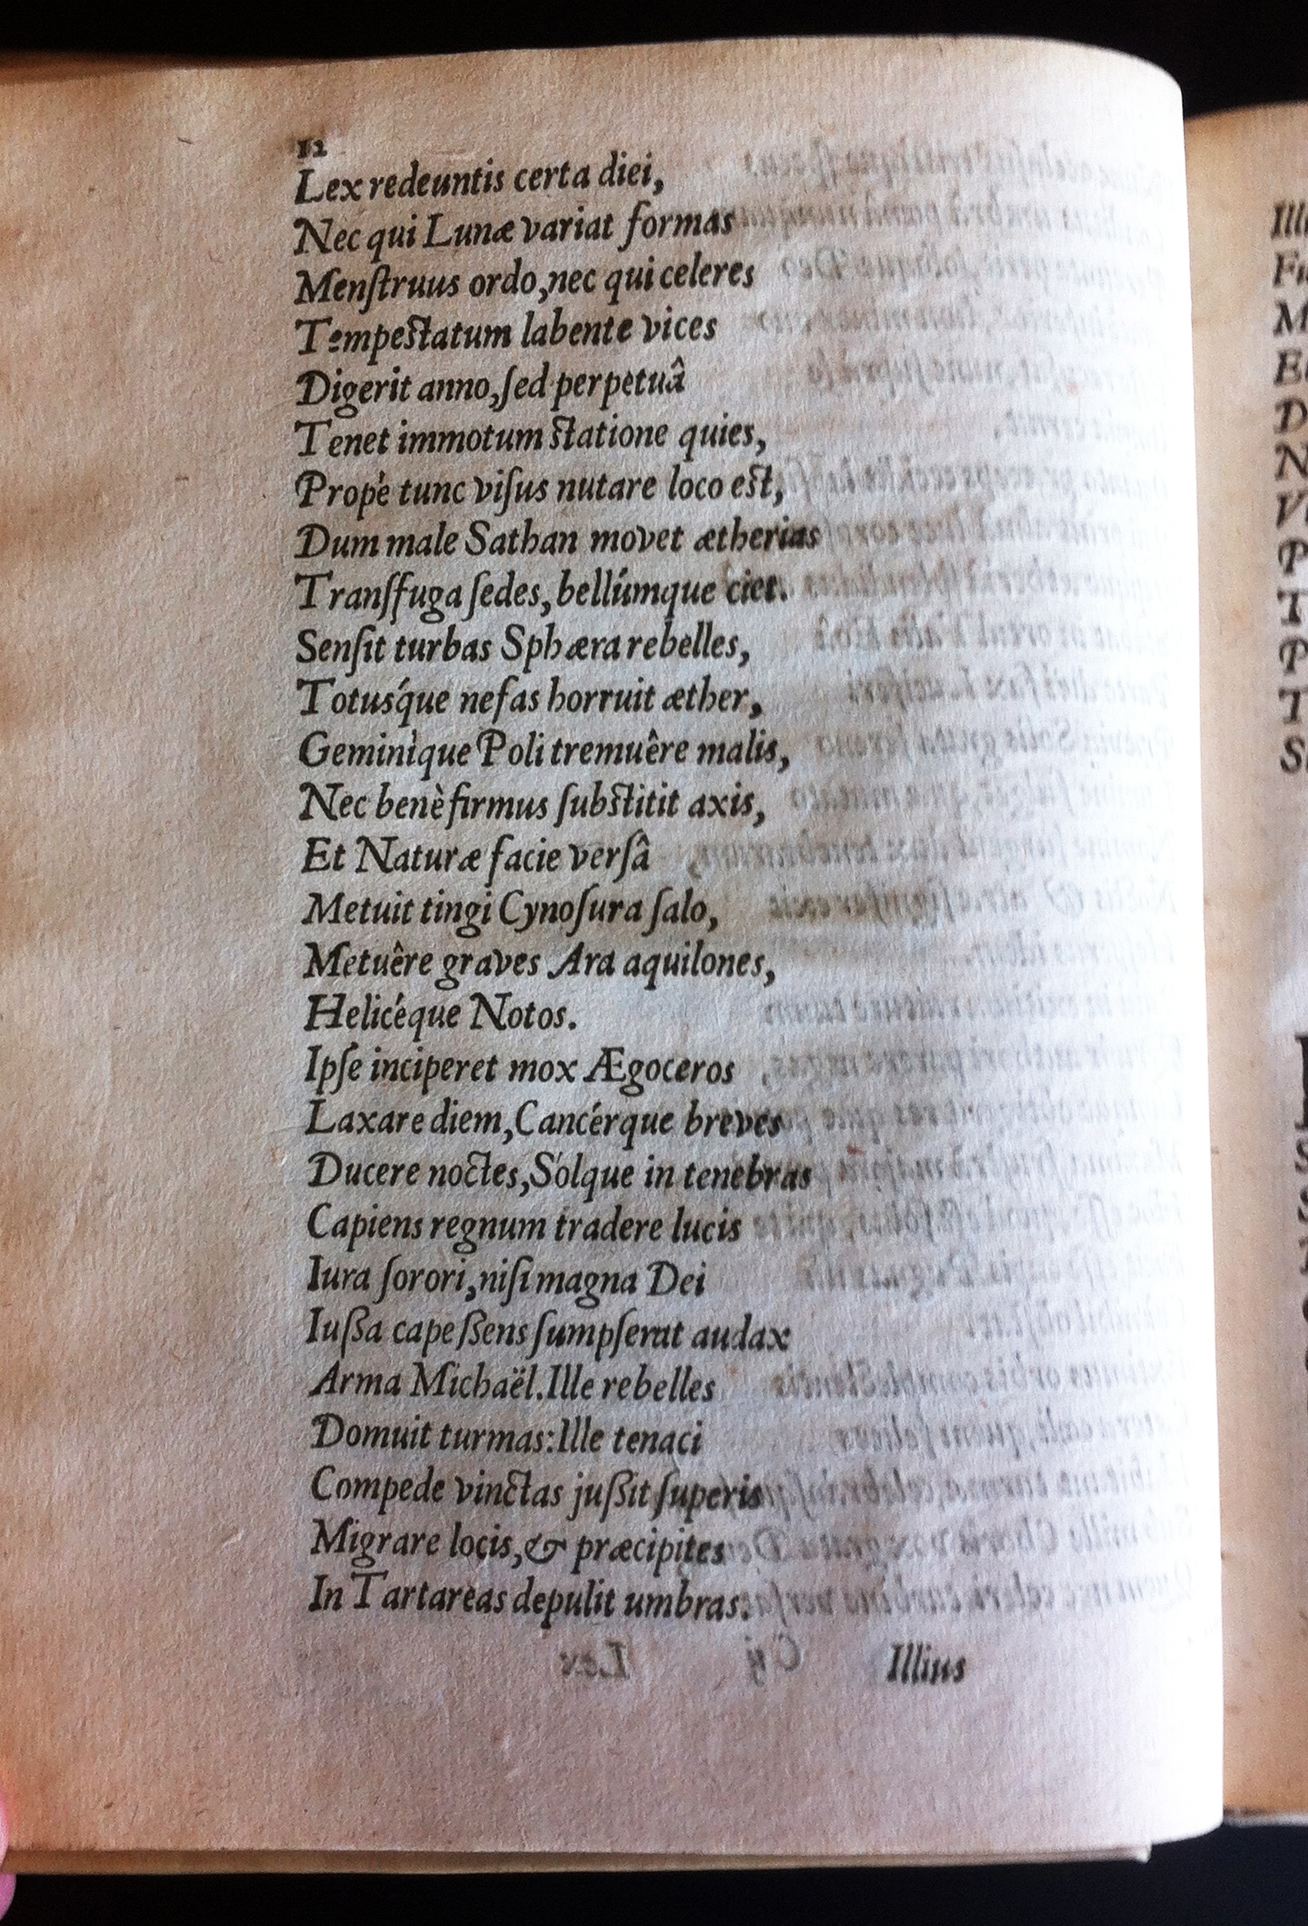 12
Lex redeuntis certa diei,
Nec qui Lunæ variat formas
Menſtruus ordo, nec qui celeres
Tempeſtatum labente vices
Digerit anno, ſed perpetuâ
Tenet immotum ſtatione quies,
Propè tunc viſus nutare loco eſt,
Dum male Sathan movet ætherias
Tranſfuga ſedes, bellúmque ciet.
Senſit turbas Sphæra rebelles,
Totuſq́ue nefas horruit æther,
Geminìque Poli tremuêre malis,
Nec benè firmus ſubſtitit axis,
Et Naturæ facie verſâ
Metuit tingi Cynoſura ſalo,
Metuêre graves Ara aquilones,
Helicéque Notos.
Ipſe inciperet mox Ægoceros
Laxare diem, Cancérque breves
Ducere noctes, Sólque in tenebras
Capiens regnum tradere lucis
Iura ſorori, niſi magna Dei
Iuſſa capeſſens ſumpſerat audax
Arma Michaël. Ille rebelles
Domuit turmas: Ille tenaci
Compede vinctas juſſit ſuperis
Migrare locis, & præcipites
In Tartareas depulit umbras.
Illius
Ill
M
D
N
P
T
P
T